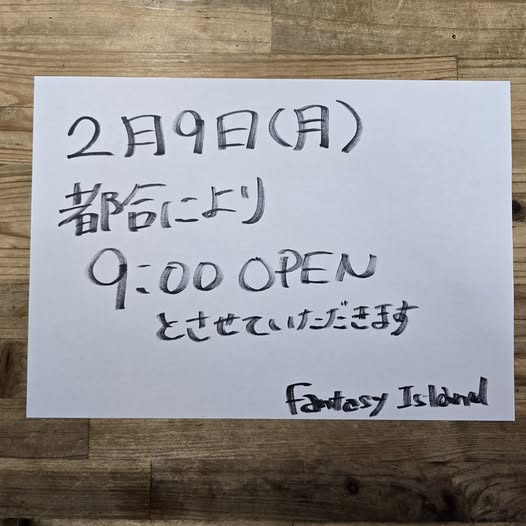 2月9日(月)
都合により
9:00 OPEN
とさせていただきます
Fantasy Island